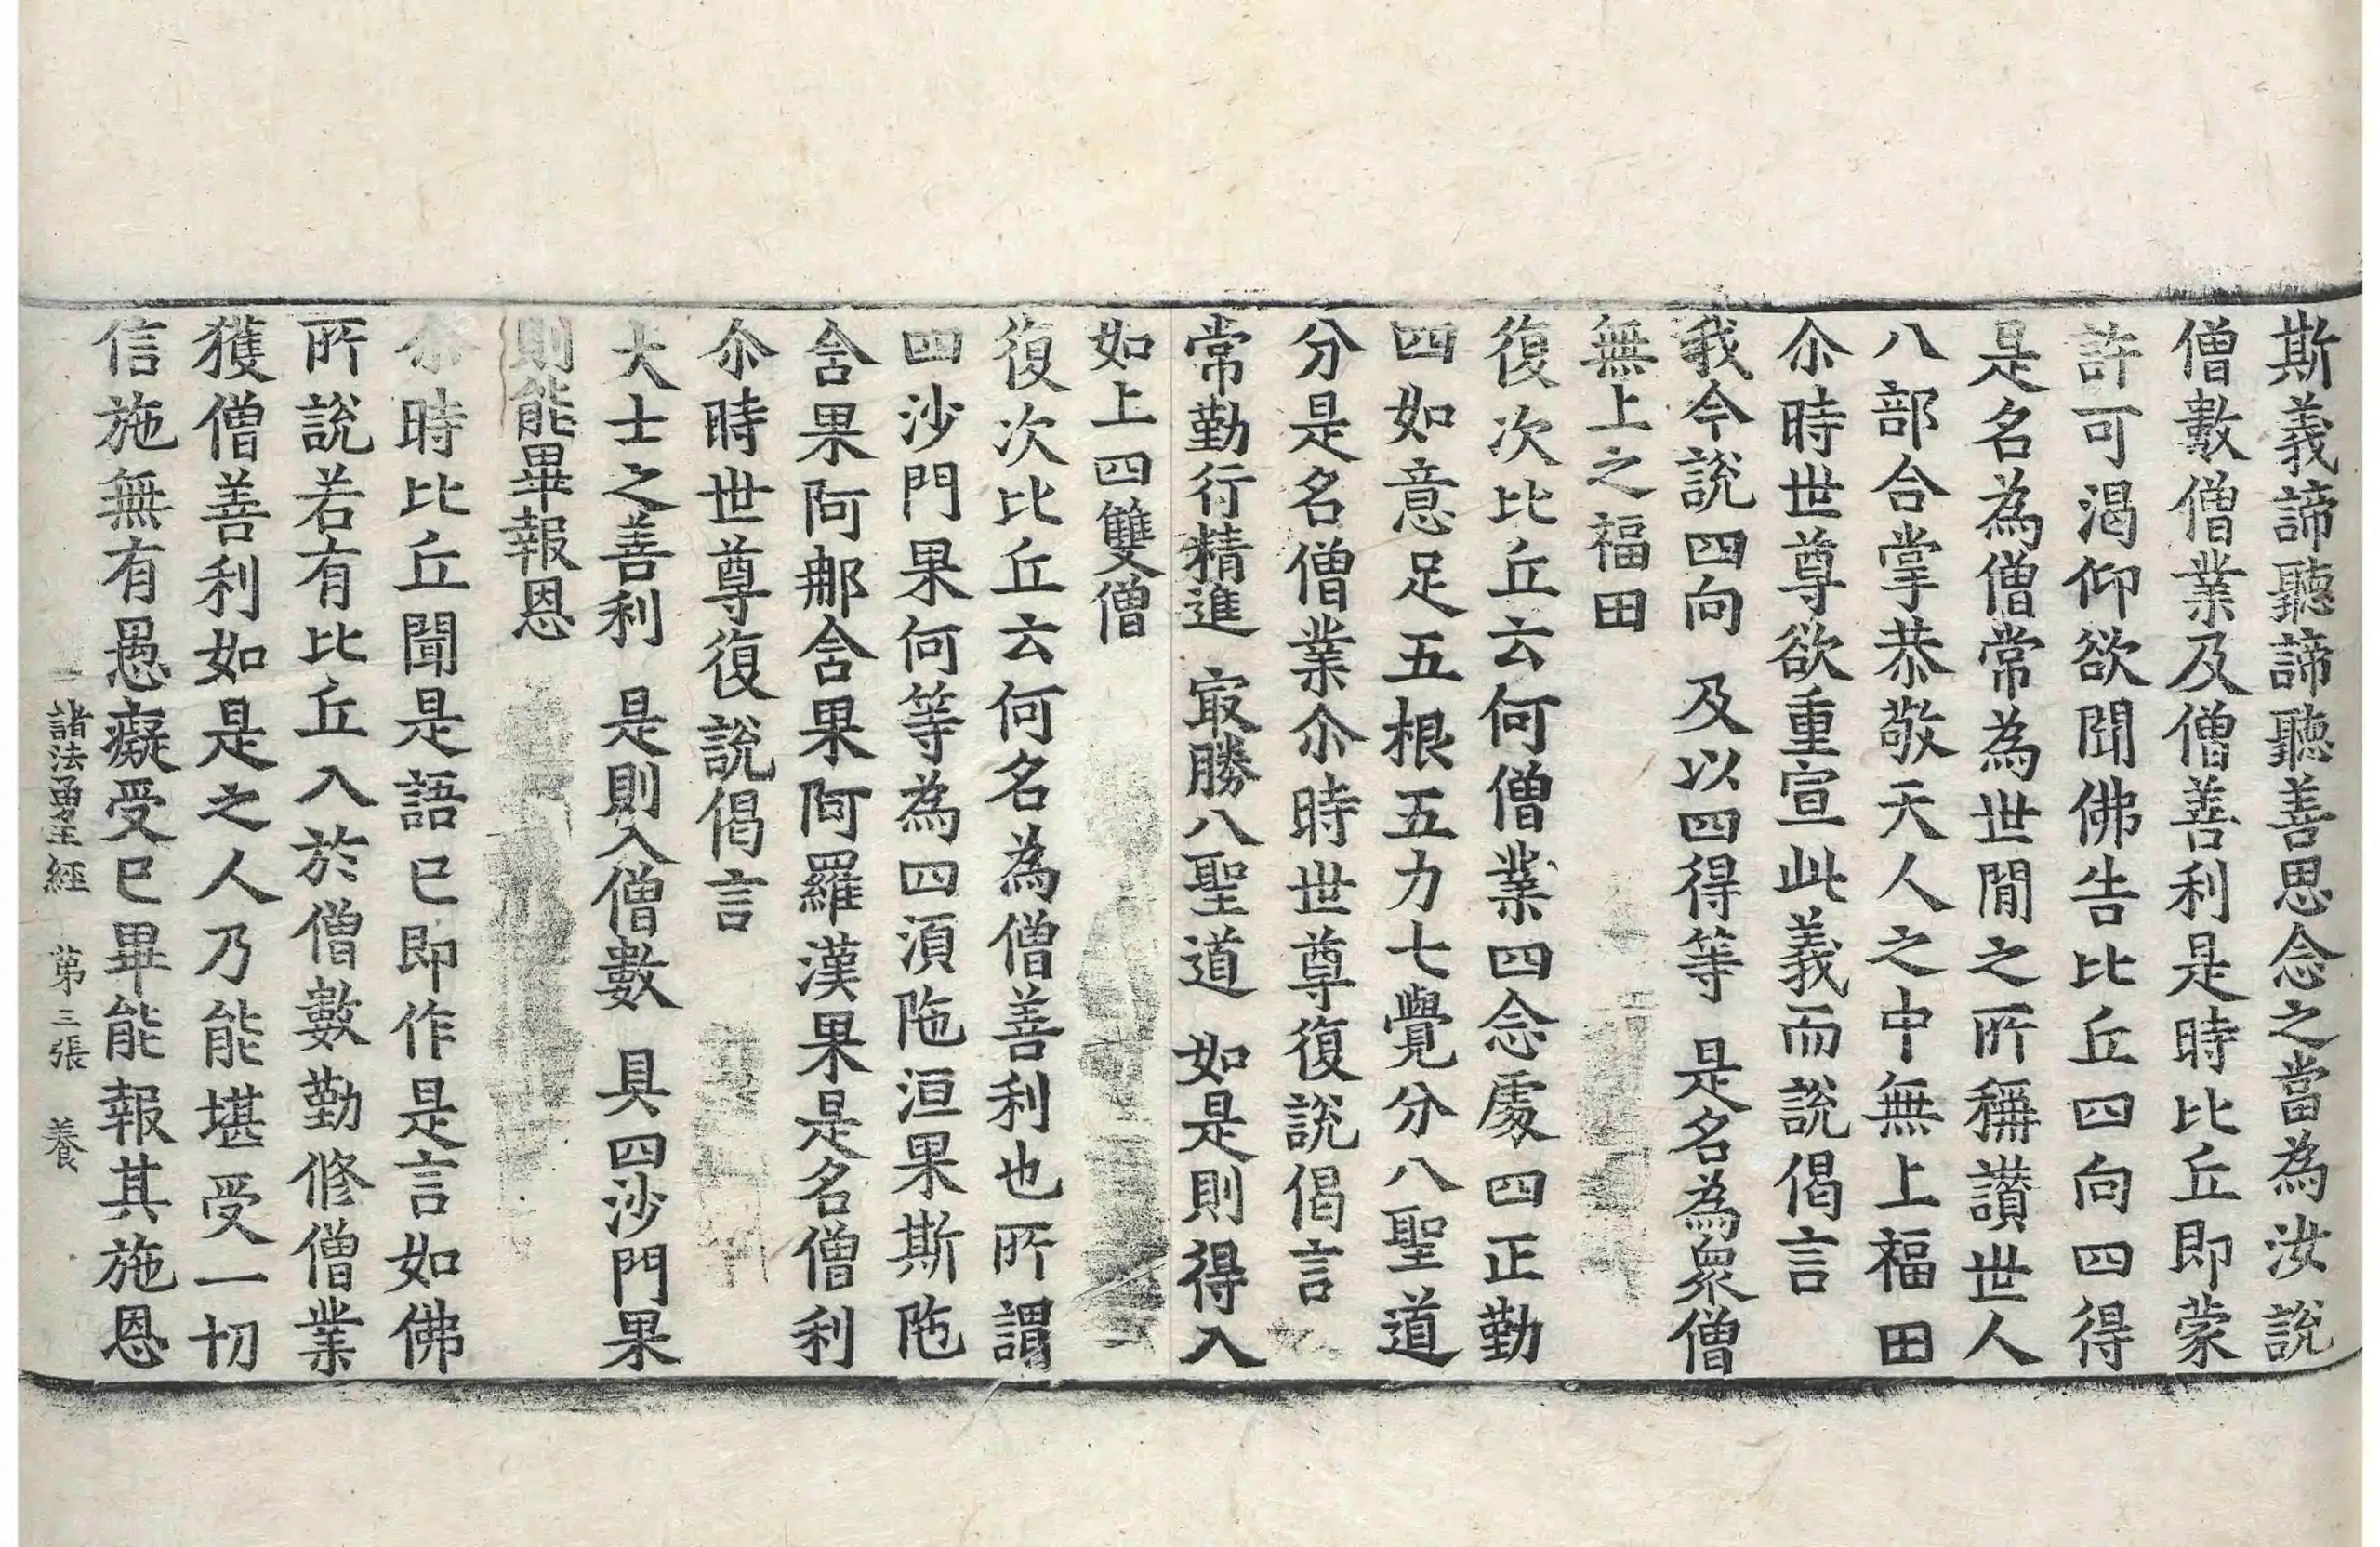 斯義諦聽諦聽善思念之當為汝說
僧數僧業及僧善利是時比丘即蒙
許可渴仰欲聞佛告比丘四向四得
是名為僧常為世間之所稱讚世人
八部合掌恭敬天人之中無上福田
尒時世尊欲重宣此義而說偈言
我今說四向 及以四得等 是名為衆僧
無上之福田
復次比丘云何僧業四念處四正勤
四如意足五根五力七覺分八聖道
分是名僧業尒時世尊復說偈言
常勤行精進 㝡勝八聖道 如是則得入
如上四雙僧
復次比丘云何名為僧善利也所謂
四沙門果何等為四湏陁洹果斯陁
含果阿那含果阿羅漢果是名僧利
尒時世尊復說偈言
大士之善利 是則入僧數 具四沙門果
則能畢報恩
尒時比丘聞是語已即作是言如佛
所說若有比丘入於僧數勤修僧業
獲僧善利如是之人乃能堪受一切
信施無有愚癡受已畢能報其施恩
諸法勇王經 第三張 養